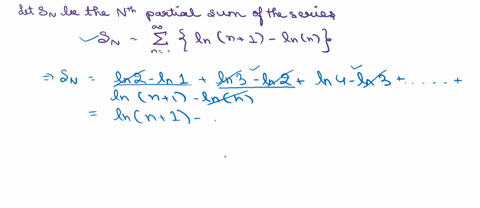 Let SN be the Nth partial sum of the series
✓SN ~ ∞∑n=1 { ln (n+1) - ln(n)}
⇒ SN = ln2 - ln 1 + ln3 - ln2 + ln 4 - ln 3 + ..... +
ln (n+1) - ln(n)
= ln(n+1) -